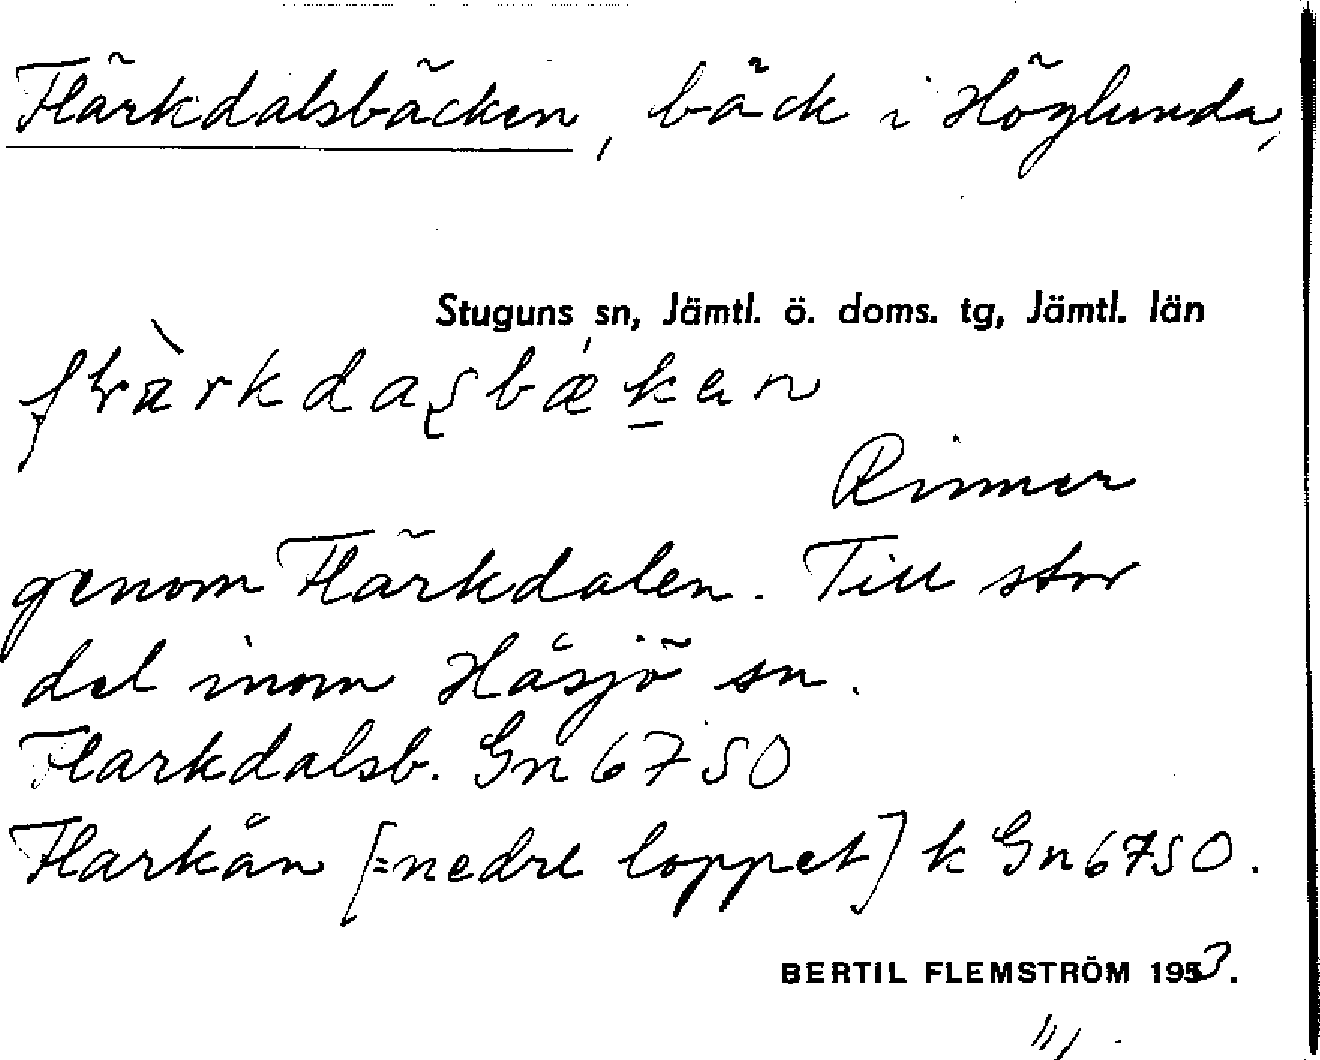 Flärkdalsbäcken, bäck i Höglunda,
Stuguns sn, Jämtl. ö. doms. tg, Jämtl. län
Rinner
genom Flärkdalen. Till stor
del inom Håsjö sn.
Flarkdalsb. Gn 6750
Flarkån [=nedre loppet] k Gn 6750.
BERTIL FLEMSTRÖM 1953.